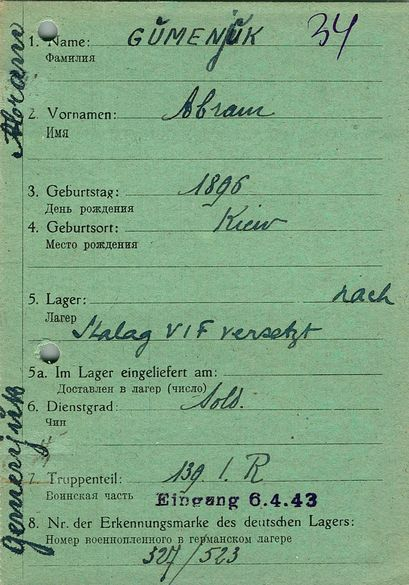 34
1. Name: GŬMENJŬK
Фамилия
2. Vornamen: Abram
Имя
3. Geburtstag: 1896
День рождения
4. Geburtsort: Kiew
Место рождения
5. Lager: nach
Лагер
Stalag VI F versetzt
5a. Im Lager eingeliefert am:
Доставлен в лагер (число)
6. Dienstgrad: Sold.
Чин
7. Truppenteil: 139 I. R
Воинская часть Eingang 6.4.43
8. Nr. der Erkennungsmarke des deutschen Lagers:
Номер военнопленного в германском лагере
327/523
Abram